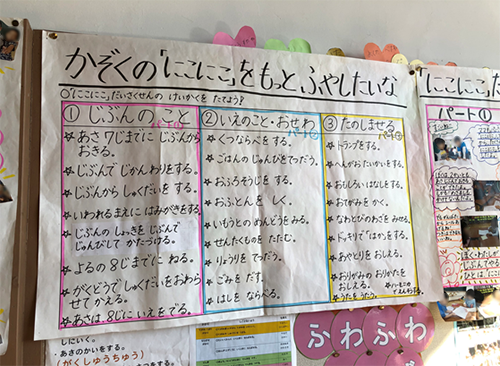 かぞくの「にこにこ」をもっとふやしたいな
○「にこにこ」だいさくせんの けいかくを たてよう?
① じぶんの こと
☆あさ 7じまでに じぶんから
おきる。
☆じぶんで じかんわりをする。
☆じぶんから しゅくだいを する。
☆いわれるまえに はみがきをする。
☆じぶんの しょっきを じぶんで
じゅんびして かたづける。
☆よるの 8じまでに ねる。
☆がくどうで しゅくだいを おわら
せて かえる。
☆あさは 8じに いえを でる。
② いえのこと・おせわ
☆くつならべを する。
☆ごはんの じゅんびを てつだう。
☆おふろそうじを する。
☆おふとんを しく。
☆いもうとの めんどうを みる。
☆せんたくものを たたむ。
☆りょうりを てつだう。
☆ごみを だす。
☆はしを ならべる。
③ たのしませる
☆トランプを する。
☆へんがおたいかいを する。
☆おもしろいはなしを する。
☆おてがみを かく。
☆なわとびのわざを みせる。
☆ドッキリで「はっ」を する。
☆あやとりを おしえる。
☆おりがみの おりかたを
おしえる。
☆うたを うたう。
「にこにこ」だ
パート①
しにいく。
・あさのかいをする。
(がくしゅうちゅう)
ふわふわ